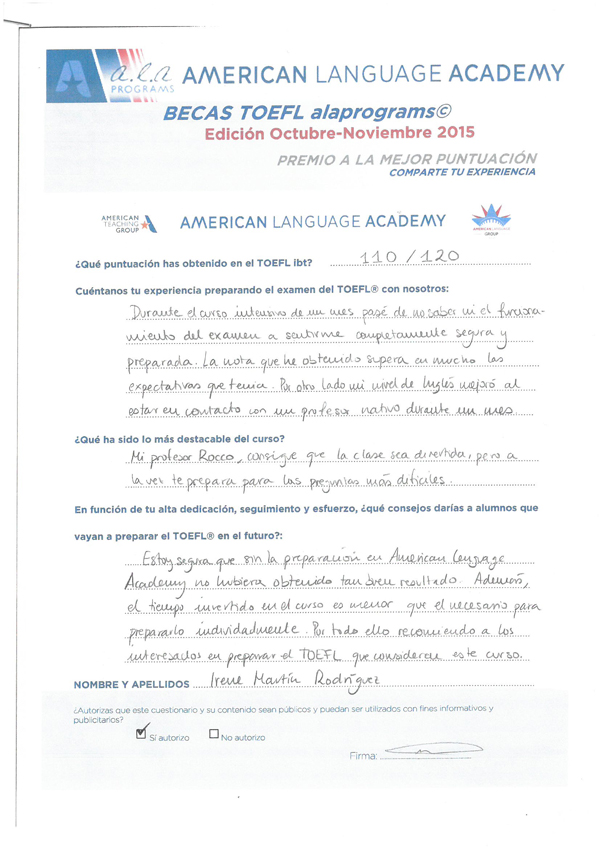 a.l.a
PROGRAMS
AMERICAN LANGUAGE ACADEMY
BECAS TOEFL alaprograms©
Edición Octubre-Noviembre 2015
PREMIO A LA MEJOR PUNTUACIÓN
COMPARTE TU EXPERIENCIA
AMERICAN
TEACHING
GROUP
AMERICAN LANGUAGE ACADEMY
GROUP
¿Qué puntuación has obtenido en el TOEFL ibt? 110/120
Cuéntanos tu experiencia preparando el examen del TOEFL® con nosotros:
Durante el curso intensivo de un mes pasé de no saber ni el funciona-
miento del examen a sentirme completamente segura y
preparada. La nota que he obtenido supera en mucho las
expectativas que tenía. Por otro lado mi nivel de Inglés mejoró al
estar en contacto con un profesor nativo durante un mes.
¿Qué ha sido lo más destacable del curso?
Mi profesor Rocco, consigue que la clase sea divertida, pero a
la vez te prepara para las preguntas más difíciles.
En función de tu alta dedicación, seguimiento y esfuerzo, ¿qué consejos darías a alumnos que
vayan a preparar el TOEFL® en el futuro?:
Estoy segura que sin la preparación en American Lenguage
Academy no hubiera obtenido tan buen resultado. Además,
el tiempo invertido en el curso es menor que el necesario para
prepararlo individualmente. Por todo ello recomiendo a los
interesados en preparar el TOEFL que consideren este curso.
NOMBRE Y APELLIDOS Irene Martín Rodríguez
¿Autorizas que este cuestionario y su contenido sean públicos y puedan ser utilizados con fines informativos y
publicitarios?
Sí autorizo No autorizo
Firma: